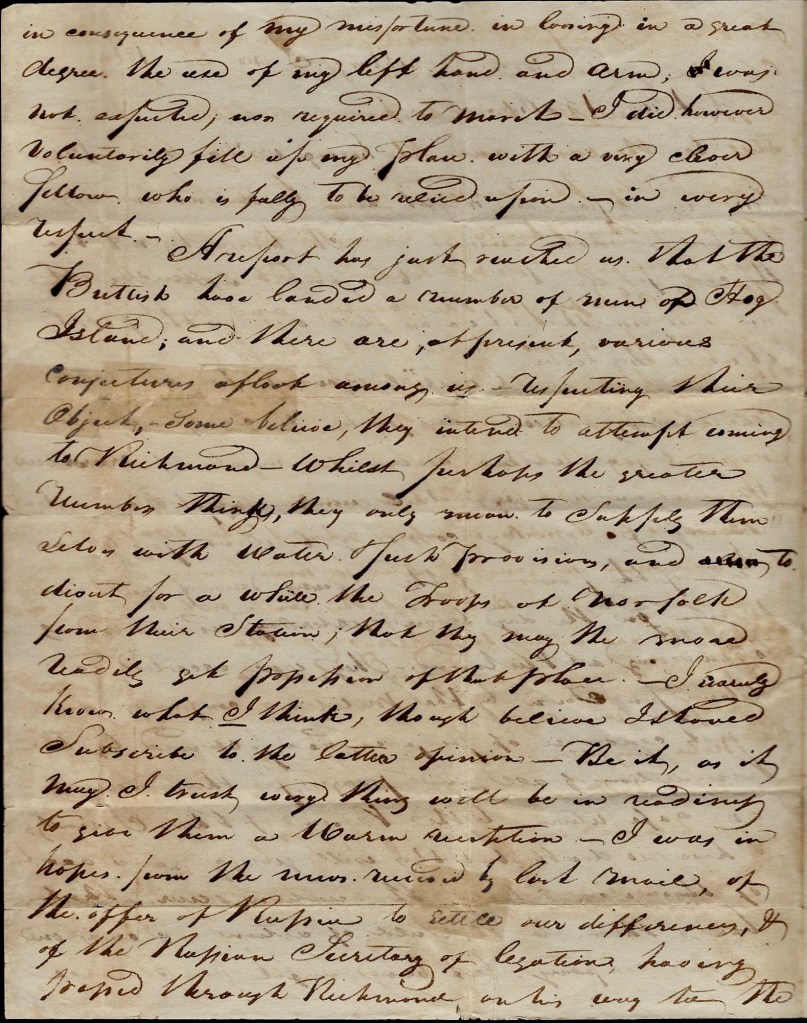 in consequence of my misfortune in loosing in a great
degree the use of my left hand and arm, I was
not expected, nor required to march – I did however
Voluntarily fill up my place with a very clever
fellow who is fully to be relied upon – in every
respect –
A report has just reached us that the
Brittish have landed a number of men on Hog
Island; and there are, at present, various
conjectures afloat among us – respecting their
Object, – Some believe, they intend to attempt coming
to Richmond – Whilst perhaps the greater
Number think, they only mean to Supply them
selves with Water fresh provisions, and to
divert for a while the Troops at Norfolk
from their Station; that they may the more
readily get possession of that place. – I scarcely
Know what I think, though believe I should
Subscribe to the latter opinion – Be it, as it
may I trust every thing will be in readiness
to give them a Warm reception – I was in
hopes from the news received by last mail, of
the offer of Russia to settle our differences, &
of the Russian Secretary of legation, having
passed through Richmond, on his way to the